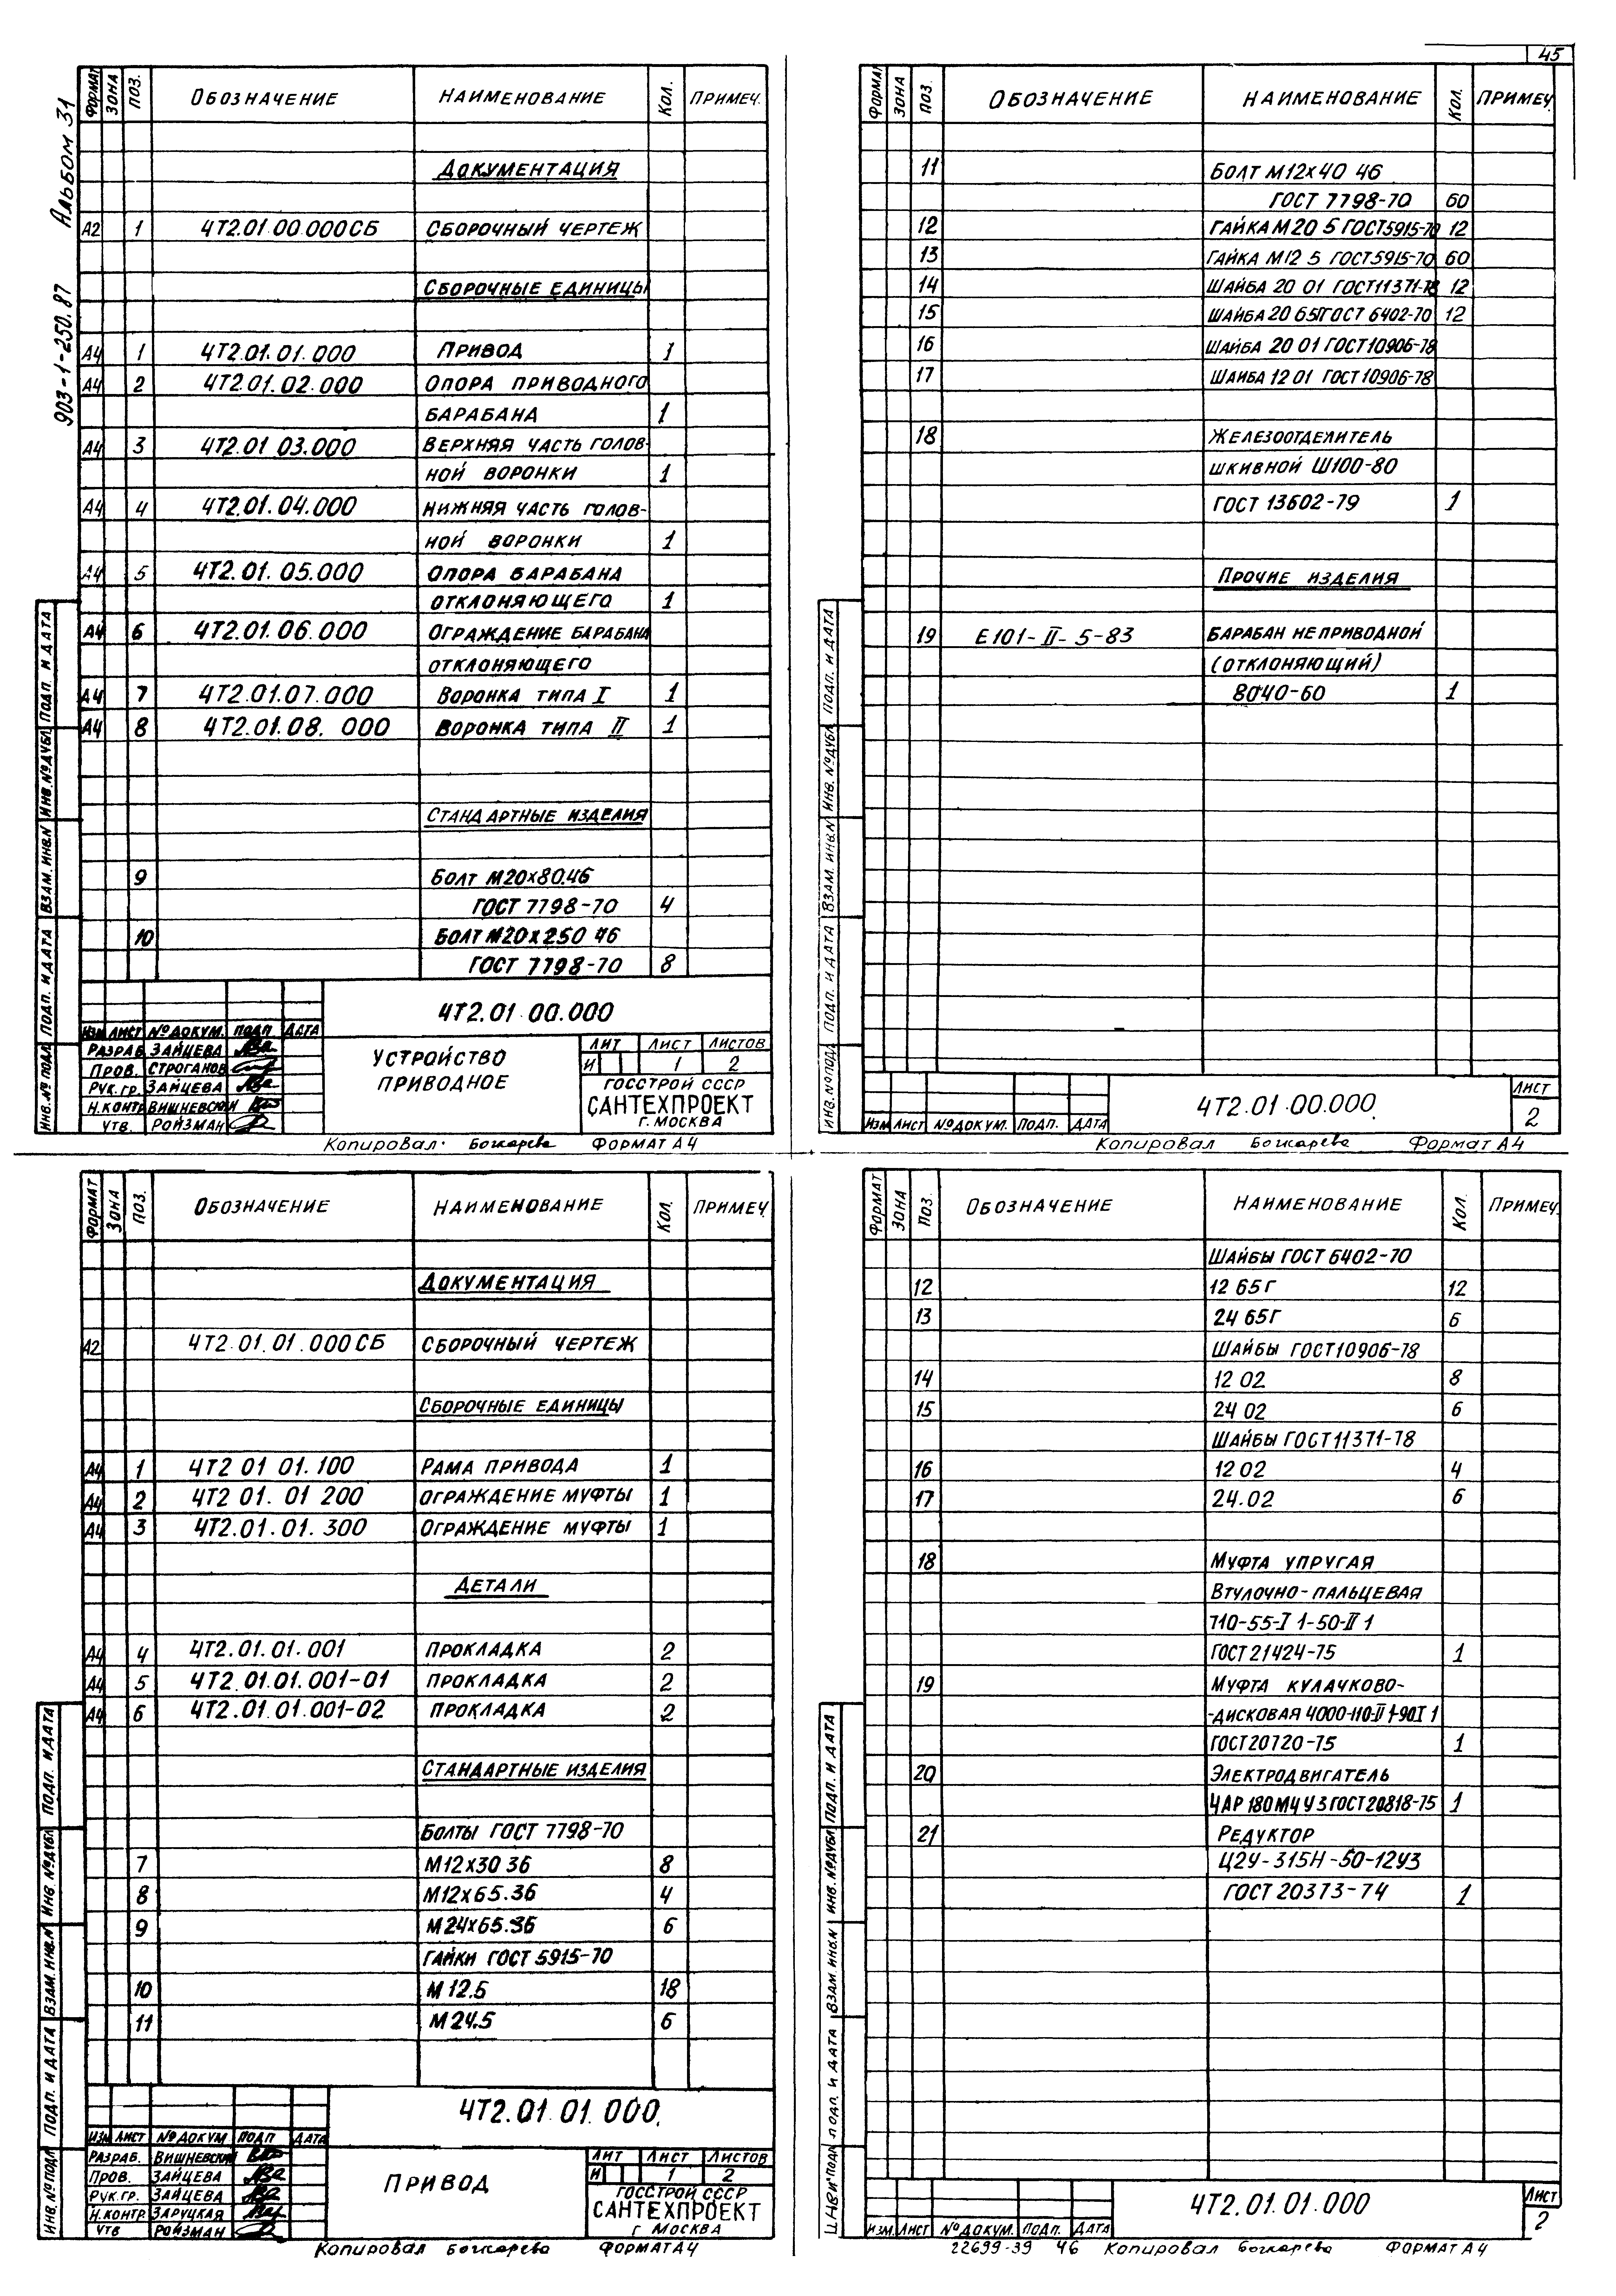 45
Альбом 31
903-1-250.87
ФОРМАТ ЗОНА ПОЗ. ОБОЗНАЧЕНИЕ НАИМЕНОВАНИЕ КОЛ. ПРИМЕЧ.
ДОКУМЕНТАЦИЯ
А2 1 4Т2.01.00.000СБ СБОРОЧНЫЙ ЧЕРТЕЖ
СБОРОЧНЫЕ ЕДИНИЦЫ
А4 1 4Т2.01.01.000 ПРИВОД 1
А4 2 4Т2.01.02.000 ОПОРА ПРИВОДНОГО
БАРАБАНА 1
А4 3 4Т2.01 03.000 ВЕРХНЯЯ ЧАСТЬ ГОЛОВ-
НОЙ ВОРОНКИ 1
А4 4 4Т2.01.04.000 НИЖНЯЯ ЧАСТЬ ГОЛОВ-
НОЙ ВОРОНКИ 1
А4 5 4Т2.01.05.000 ОПОРА БАРАБАНА
ОТКЛОНЯЮЩЕГО 1
А4 6 4Т2.01.06.000 ОГРАЖДЕНИЕ БАРАБАНА
ОТКЛОНЯЮЩЕГО
А4 7 4Т2.01.07.000 ВОРОНКА ТИПА I 1
А4 8 4Т2.01.08.000 ВОРОНКА ТИПА II 1
СТАНДАРТНЫЕ ИЗДЕЛИЯ
9 БОЛТ М20х80.46
ГОСТ 7798-70 4
10 БОЛТ М20х250 46
ГОСТ 7798-70 8
4Т2.01 00.000
ИЗМ ЛИСТ №ДОКУМ. ПОДП ДАТА
РАЗРАБ ЗАЙЦЕВА
ПРОВ. СТРОГАНОВ
РУК.ГР. ЗАЙЦЕВА
Н.КОНТР ВИШНЕВСКИЙ
УТВ. РОЙЗМАН
УСТРОЙСТВО
ПРИВОДНОЕ
ЛИТ ЛИСТ ЛИСТОВ
И 1 2
ГОССТРОЙ СССР
САНТЕХПРОЕКТ
Г. МОСКВА
ИНВ.№ ПОДЛ ПОДП. И ДАТА ВЗАМ. ИНВ.№ ИНВ.№ДУБЛ ПОДП. И ДАТА
Копировал: Бочкарева ФОРМАТ А4
ФОРМАТ ЗОНА ПОЗ. ОБОЗНАЧЕНИЕ НАИМЕНОВАНИЕ КОЛ. ПРИМЕЧ.
11 БОЛТ М12х40 46
ГОСТ 7798-70 60
12 ГАЙКА М20 5 ГОСТ5915-70 12
13 ГАЙКА М12 5 ГОСТ5915-70 60
14 ШАЙБА 20 01 ГОСТ11371-78 12
15 ШАЙБА 20 65Г ГОСТ 6402-70 12
16 ШАЙБА 20 01 ГОСТ10906-78
17 ШАЙБА 12 01 ГОСТ10906-78
18 ЖЕЛЕЗООТДЕЛИТЕЛЬ
ШКИВНОЙ Ш100-80
ГОСТ 13602-79 1
ПРОЧИЕ ИЗДЕЛИЯ
19 Е101-II-5-83 БАРАБАН НЕПРИВОДНОЙ
(ОТКЛОНЯЮЩИЙ)
8040-60 1
ИНВ.№ПОДЛ ПОДП. И ДАТА ВЗАМ. ИНВ.№ ИНВ.№ДУБЛ ПОДП. И ДАТА
ИЗМ ЛИСТ №ДОКУМ. ПОДП. ДАТА
4Т2.01.00.000
ЛИСТ
2
Копировал Бочкарева Формат А4
ФОРМАТ ЗОНА ПОЗ. ОБОЗНАЧЕНИЕ НАИМЕНОВАНИЕ КОЛ. ПРИМЕЧ
ДОКУМЕНТАЦИЯ
А2 4Т2.01.01.000СБ СБОРОЧНЫЙ ЧЕРТЕЖ
СБОРОЧНЫЕ ЕДИНИЦЫ
А4 1 4Т2 01 01.100 РАМА ПРИВОДА 1
А4 2 4Т2 01.01 200 ОГРАЖДЕНИЕ МУФТЫ 1
А4 3 4Т2.01.01.300 ОГРАЖДЕНИЕ МУФТЫ 1
ДЕТАЛИ
А4 4 4Т2.01.01.001 ПРОКЛАДКА 2
А4 5 4Т2.01.01.001-01 ПРОКЛАДКА 2
А4 6 4Т2.01.01.001-02 ПРОКЛАДКА 2
СТАНДАРТНЫЕ ИЗДЕЛИЯ
БОЛТЫ ГОСТ 7798-70
7 М12х30 36 8
8 М12х65.36 4
9 М24х65.36 6
ГАЙКИ ГОСТ 5915-70
10 М 12.5 18
11 М24.5 6
4Т2.01 01.000.
ИЗМ ЛИСТ №ДОКУМ ПОДП ДАТА
РАЗРАБ. ВИШНЕВСКИЙ
ПРОВ. ЗАЙЦЕВА
РУК.ГР. ЗАЙЦЕВА
Н.КОНТР. ЗАРУЦКАЯ
УТВ РОЙЗМАН
ПРИВОД
ЛИТ ЛИСТ ЛИСТОВ
И 1 2
ГОССТРОЙ СССР
САНТЕХПРОЕКТ
Г МОСКВА
ИНВ.№ПОДЛ ПОДП. И ДАТА ВЗАМ. ИНВ.№ ИНВ №ДУБЛ ПОДП. И ДАТА
Копировал Бочкарева ФОРМАТ А4
ФОРМАТ ЗОНА ПОЗ. ОБОЗНАЧЕНИЕ НАИМЕНОВАНИЕ КОЛ. ПРИМЕЧ.
ШАЙБЫ ГОСТ 6402-70
12 12 65Г 12
13 24 65Г 6
ШАЙБЫ ГОСТ10906-78
14 12 02 8
15 24 02 6
ШАЙБЫ ГОСТ11371-78
16 12 02 4
17 24.02 6
18 МУФТА УПРУГАЯ
ВТУЛОЧНО-ПАЛЬЦЕВАЯ
710-55-I 1-50-II 1
ГОСТ 21424-75 1
19 МУФТА КУЛАЧКОВО-
-ДИСКОВАЯ 4000-110-II 1-90I 1
ГОСТ20720-75 1
20 ЭЛЕКТРОДВИГАТЕЛЬ
4АР 180М4 У3 ГОСТ20818-75 1
21 РЕДУКТОР
Ц2У-315Н-50-12У3
ГОСТ 20373-74 1
ПОДП. И ДАТА ВЗАМ. ИНВ.№ ИНВ. №ДУБЛ ПОДП. И ДАТА
ИЗМ. ЛИСТ №ДОКУМ. ПОДП. ДАТА
4Т2.01.01.000
ЛИСТ
2
22699-39 46 Копировал Бочкарева ФОРМАТ А4